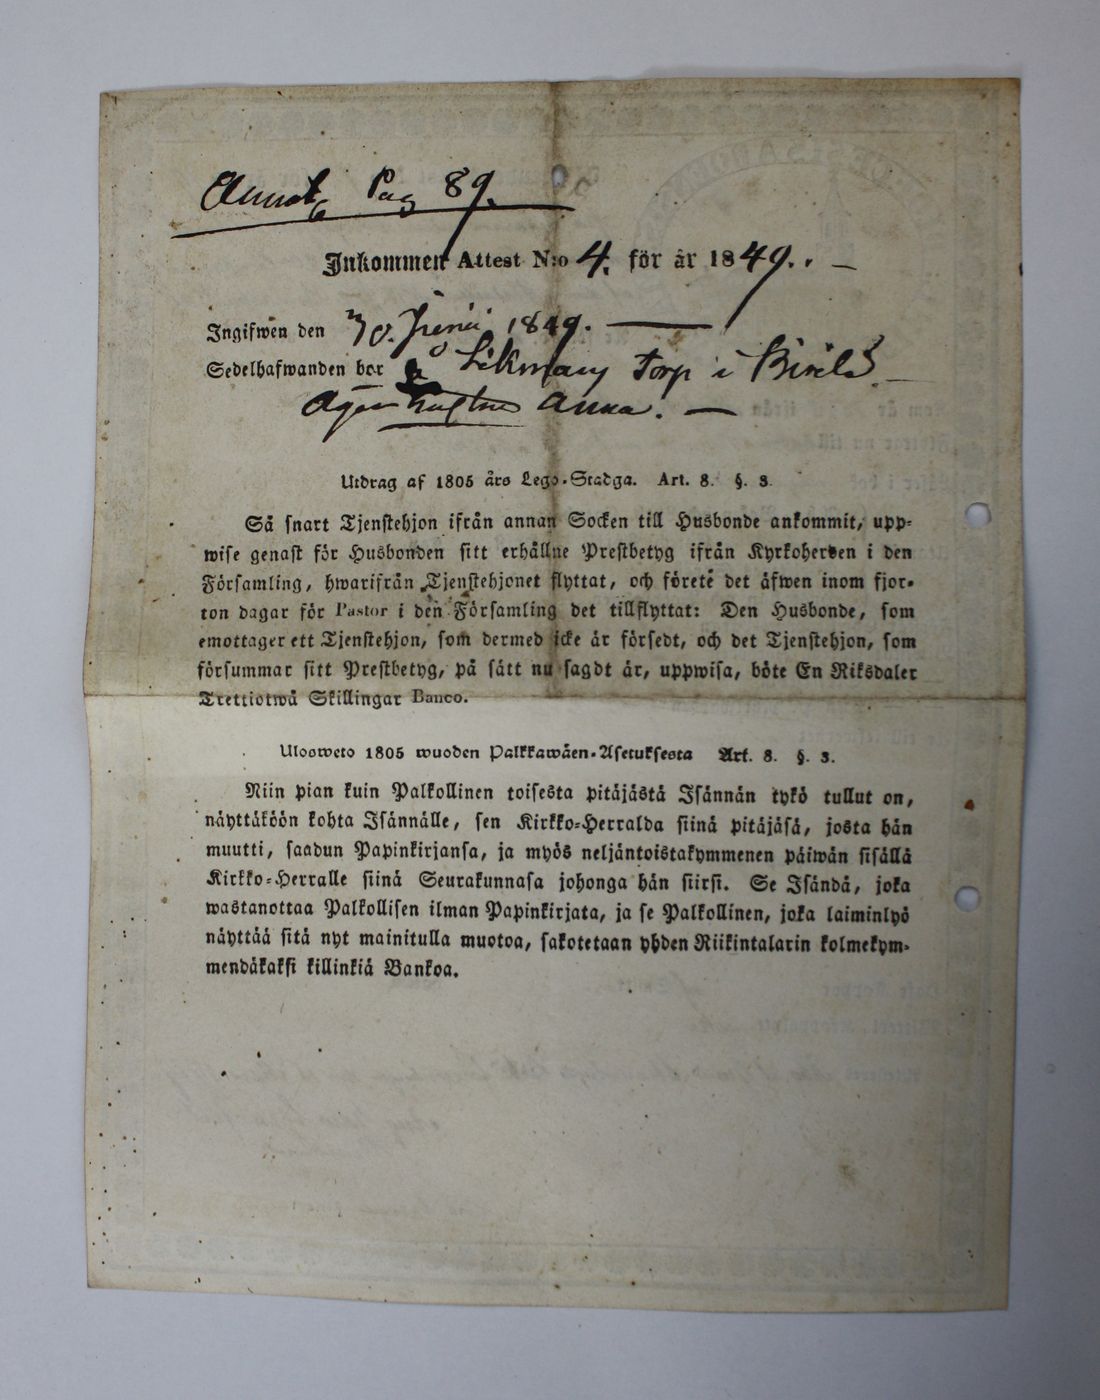 Annot. Pag 89.
Inkommen Attest N:o 4. för år 1849.
Ingifwen den 30. Junii 1849.
Sedelhafwanden bor på Torp i
Anna.
Utdrag af 1805 års Lego-Stadga. Art. 8. §. 3.
Så snart Tjenstehjon ifrån annan Socken till Husbonde ankommit, upp-
wise genast för Husbonden sitt erhållne Prestbetyg ifrån Kyrkoherden i den
Församling, hwarifrån Tjenstehjonet flyttat, och företé det äfwen inom fjor-
ton dagar för Pastor i den Församling det tillflyttat: Den Husbonde, som
emottager ett Tjenstehjon, som dermed icke är försedt, och det Tjenstehjon, som
försummar sitt Prestbetyg, på sätt nu sagdt är, uppwisa, böte En Riksdaler
Trettiotwå Skillingar Banco.
Ulosweto 1805 wuoden Palkkawäen-Asetuksesta Art. 8. §. 3.
Niin pian kuin Palkollinen toisesta pitäjästä Isännän tykö tullut on,
näyttäköön kohta Isännälle, sen Kirkko-Herralda siinä pitäjäsä, josta hän
muutti, saadun Papinkirjansa, ja myös neljäntoistakymmenen päiwän sisällä
Kirkko-Herralle siinä Seurakunnasa johonga hän siirsi. Se Isändä, joka
wastanottaa Palkollisen ilman Papinkirjata, ja se Palkollinen, joka laiminlyö
näyttää sitä nyt mainitulla muotoa, sakotetaan yhden Riikintalarin kolmekym-
mendäkaksi killinkiä Bankoa.